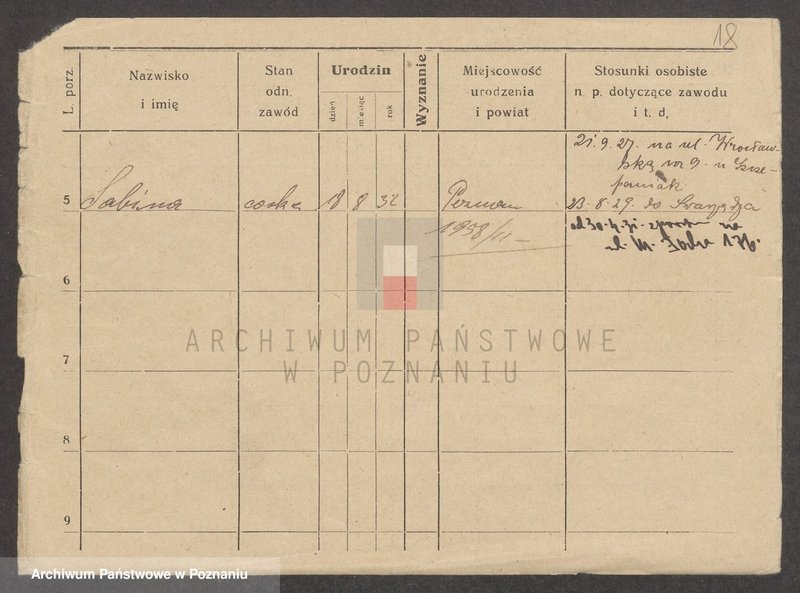 18
L. porz.
Nazwisko
i imię
Stan
odn.
zawód
Urodzin
dzień
miesiąc
rok
Wyznanie
Miejscowość
urodzenia
i powiat
Stosunki osobiste
n. p. dotyczące zawodu
i t. d.
21.9.27. na ul. Wrocław-
ską nr 9. u Szcze-
paniak
5 Sabina córka 18 8 32 Poznań 23.8.29. do Swarzędza
1958/11 –
od 30.4.31. na
ul. M. Focha 176.
6
7
8
9
ARCHIWUM PAŃSTWOWE
W POZNANIU
Archiwum Państwowe w Poznaniu